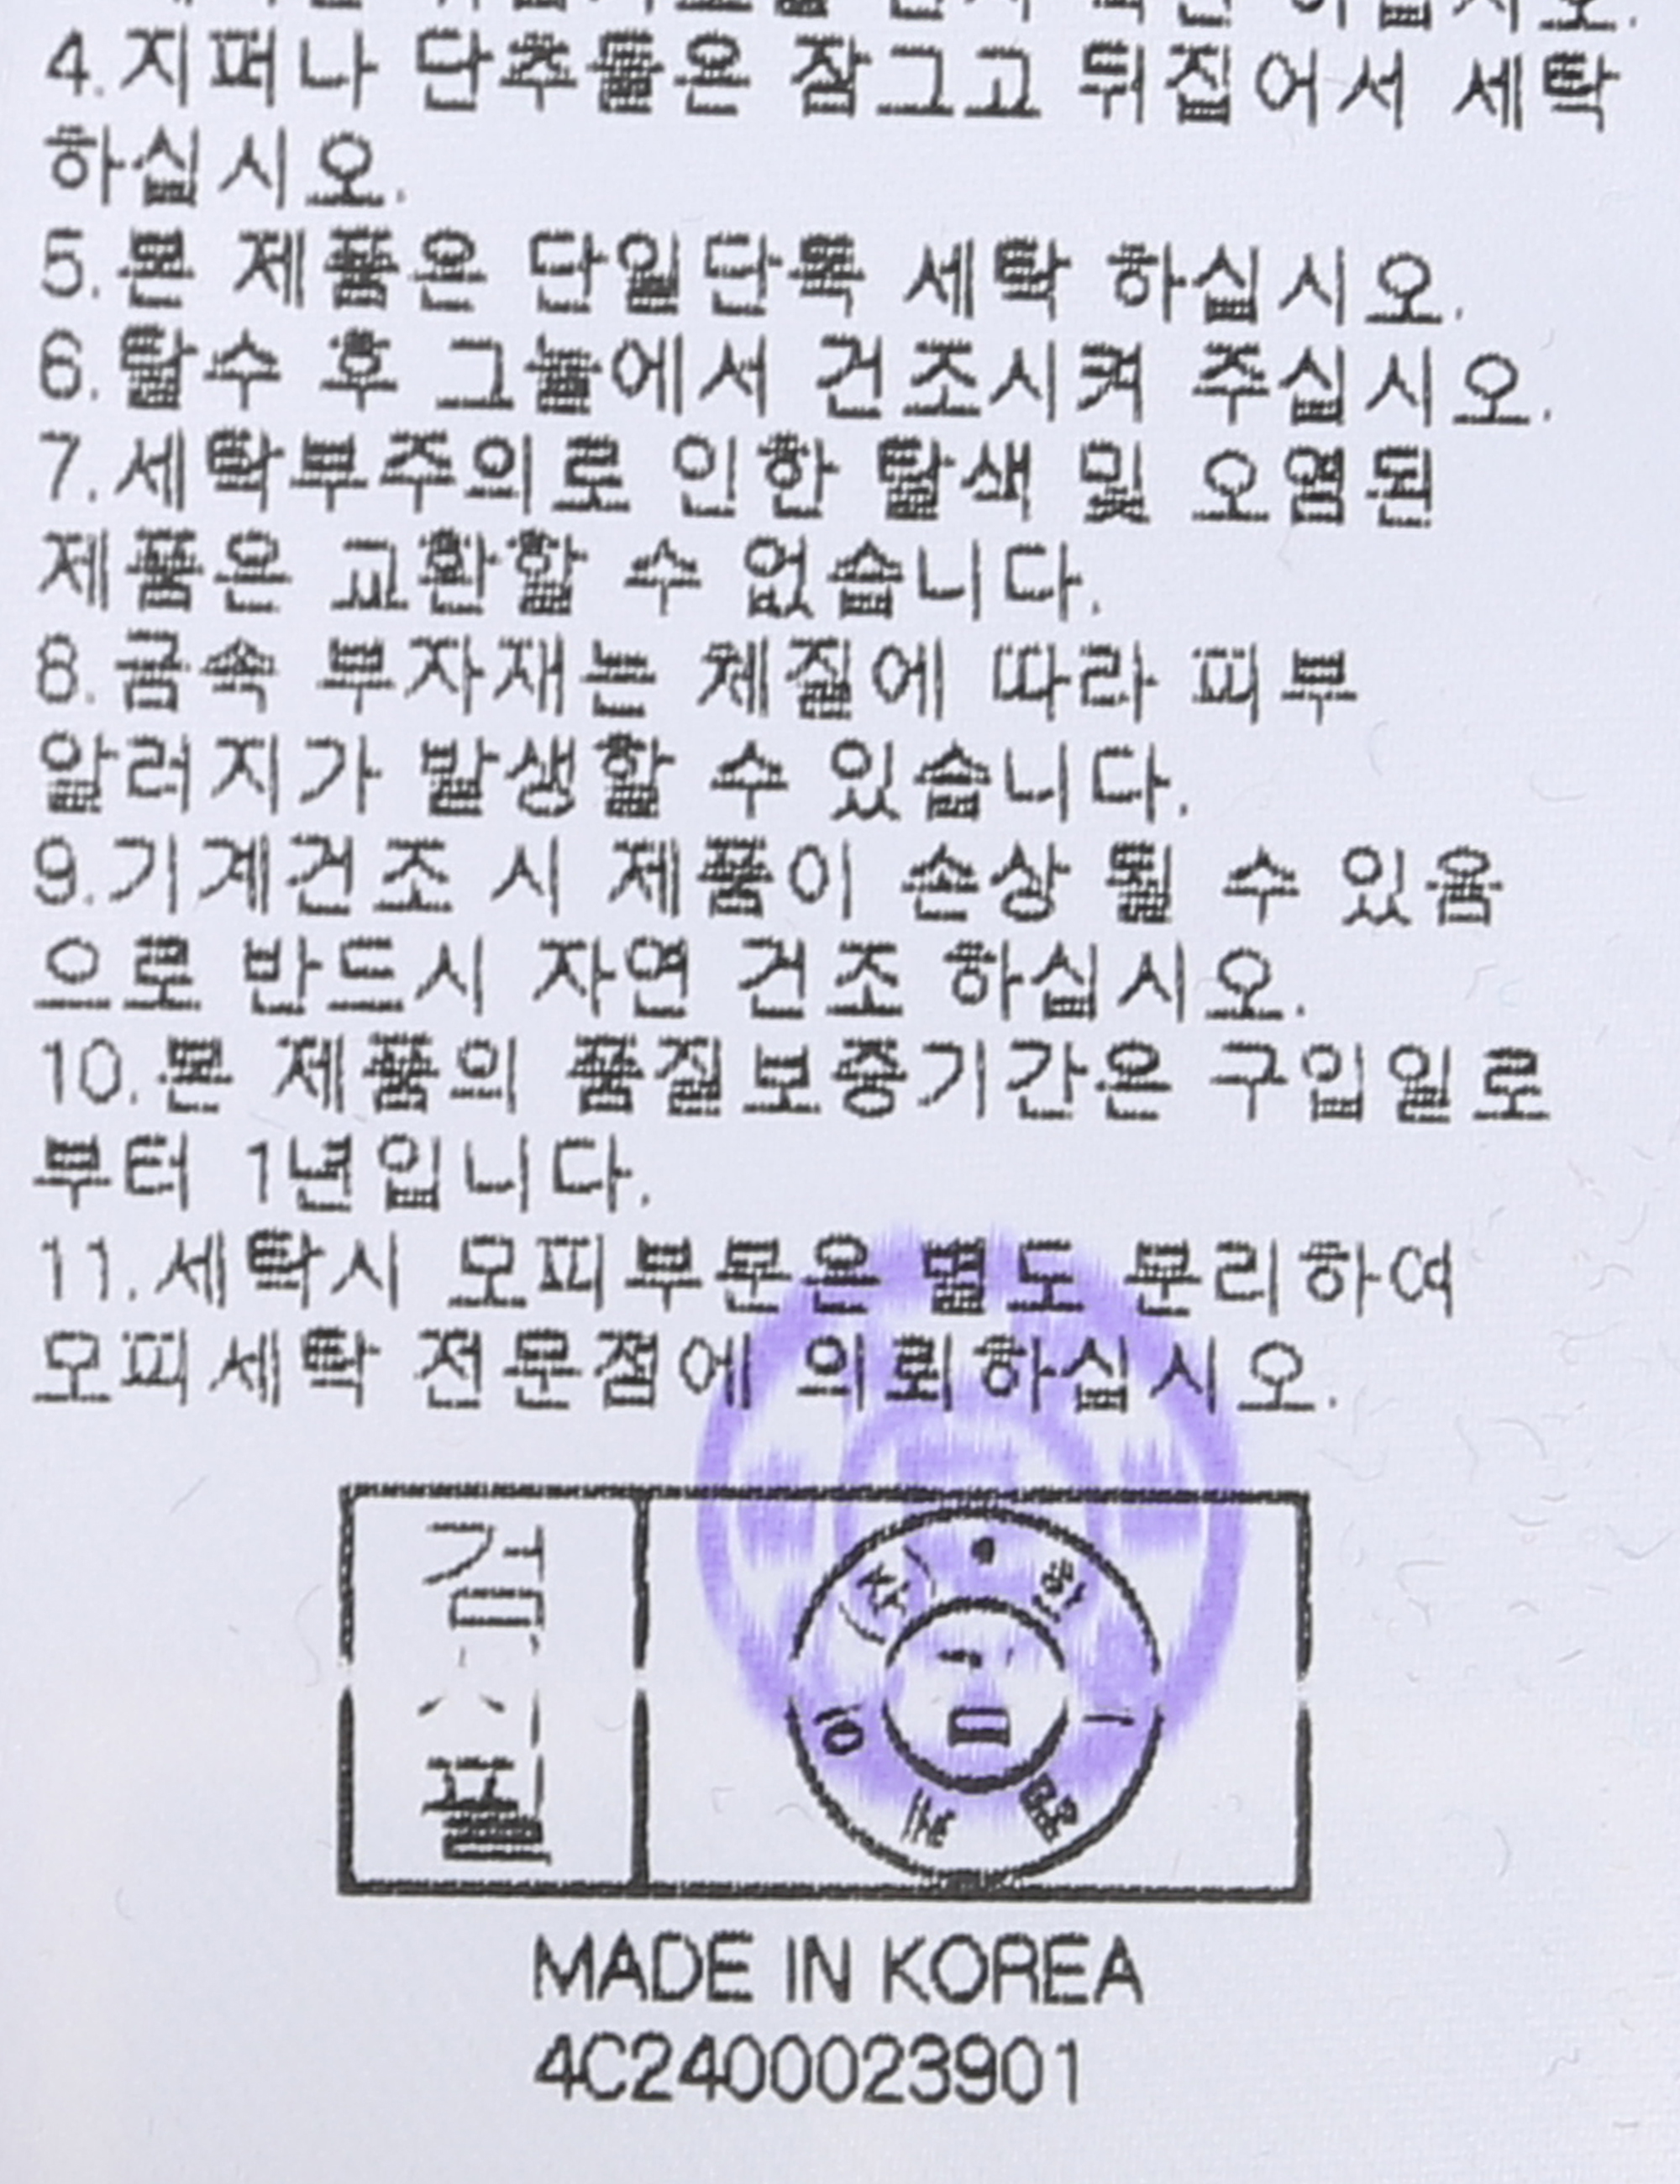 4.지퍼나 단추들은 잠그고 뒤집어서 세탁
하십시오.
5.본 제품은 단일단독 세탁 하십시오.
6.탈수 후 그늘에서 건조시켜 주십시오.
7.세탁부주의로 인한 탈색 및 오염된
제품은 교환할 수 없습니다.
8.금속 부자재는 체질에 따라 피부
알러지가 발생할 수 있습니다.
9.기계건조 시 제품이 손상 될 수 있음
으로 반드시 자연 건조 하십시오.
10.본 제품의 품질보증기간은 구입일로
부터 1년입니다.
11.세탁시 모피부분은 별도 분리하여
모피세탁 전문점에 의뢰하십시오.
검
사
필
MADE IN KOREA
4C2400023901